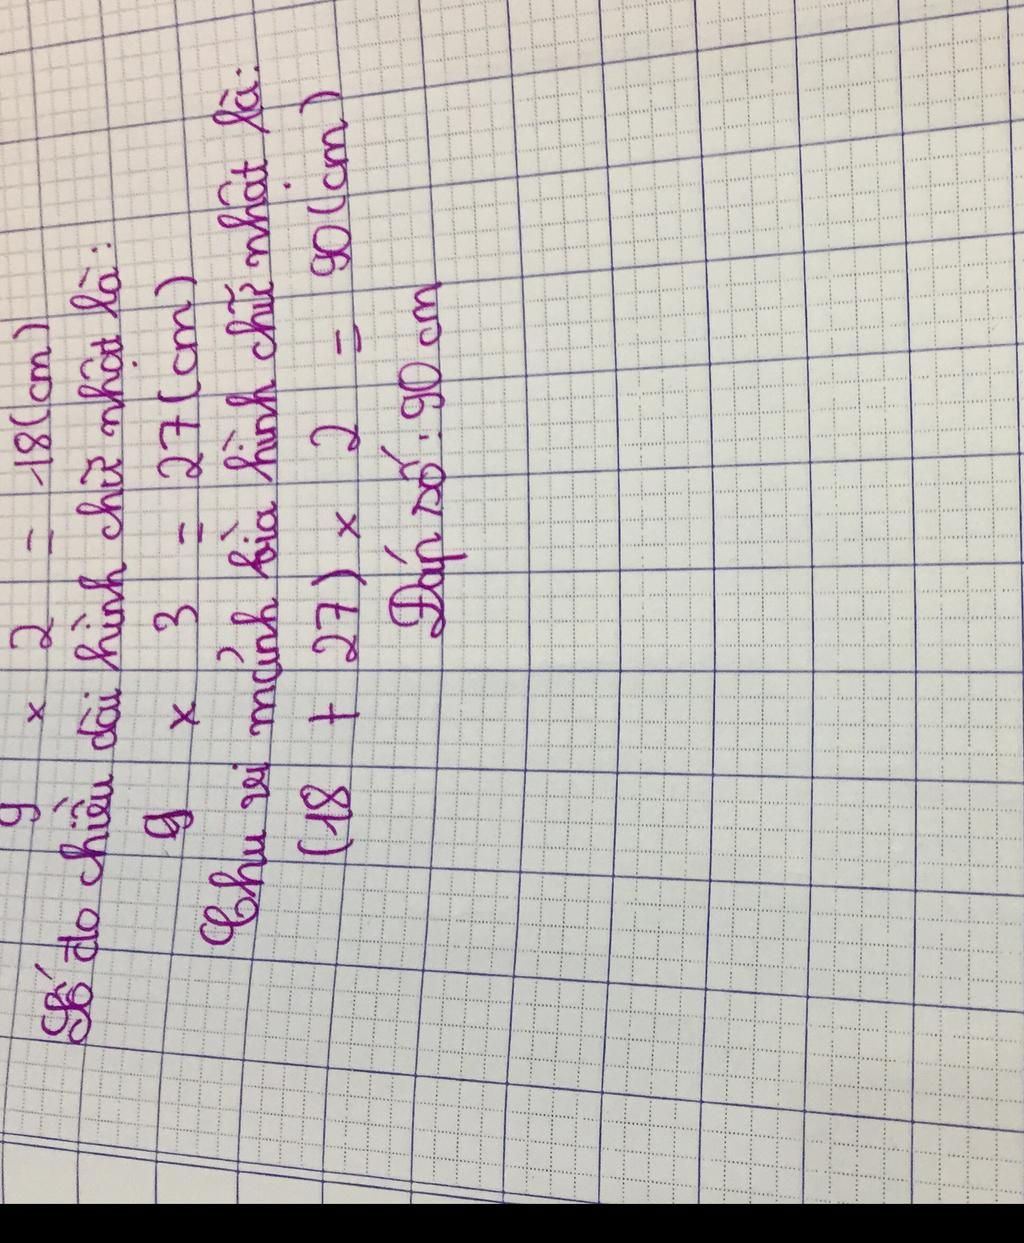 9 x 2 = 18 (cm)
Số đo chiều dài hình chữ nhật là:
9 x 3 = 27 (cm)
Chu vi mảnh bìa hình chữ nhật là:
(18 + 27) x 2 = 90 (cm)
Đáp số: 90 cm